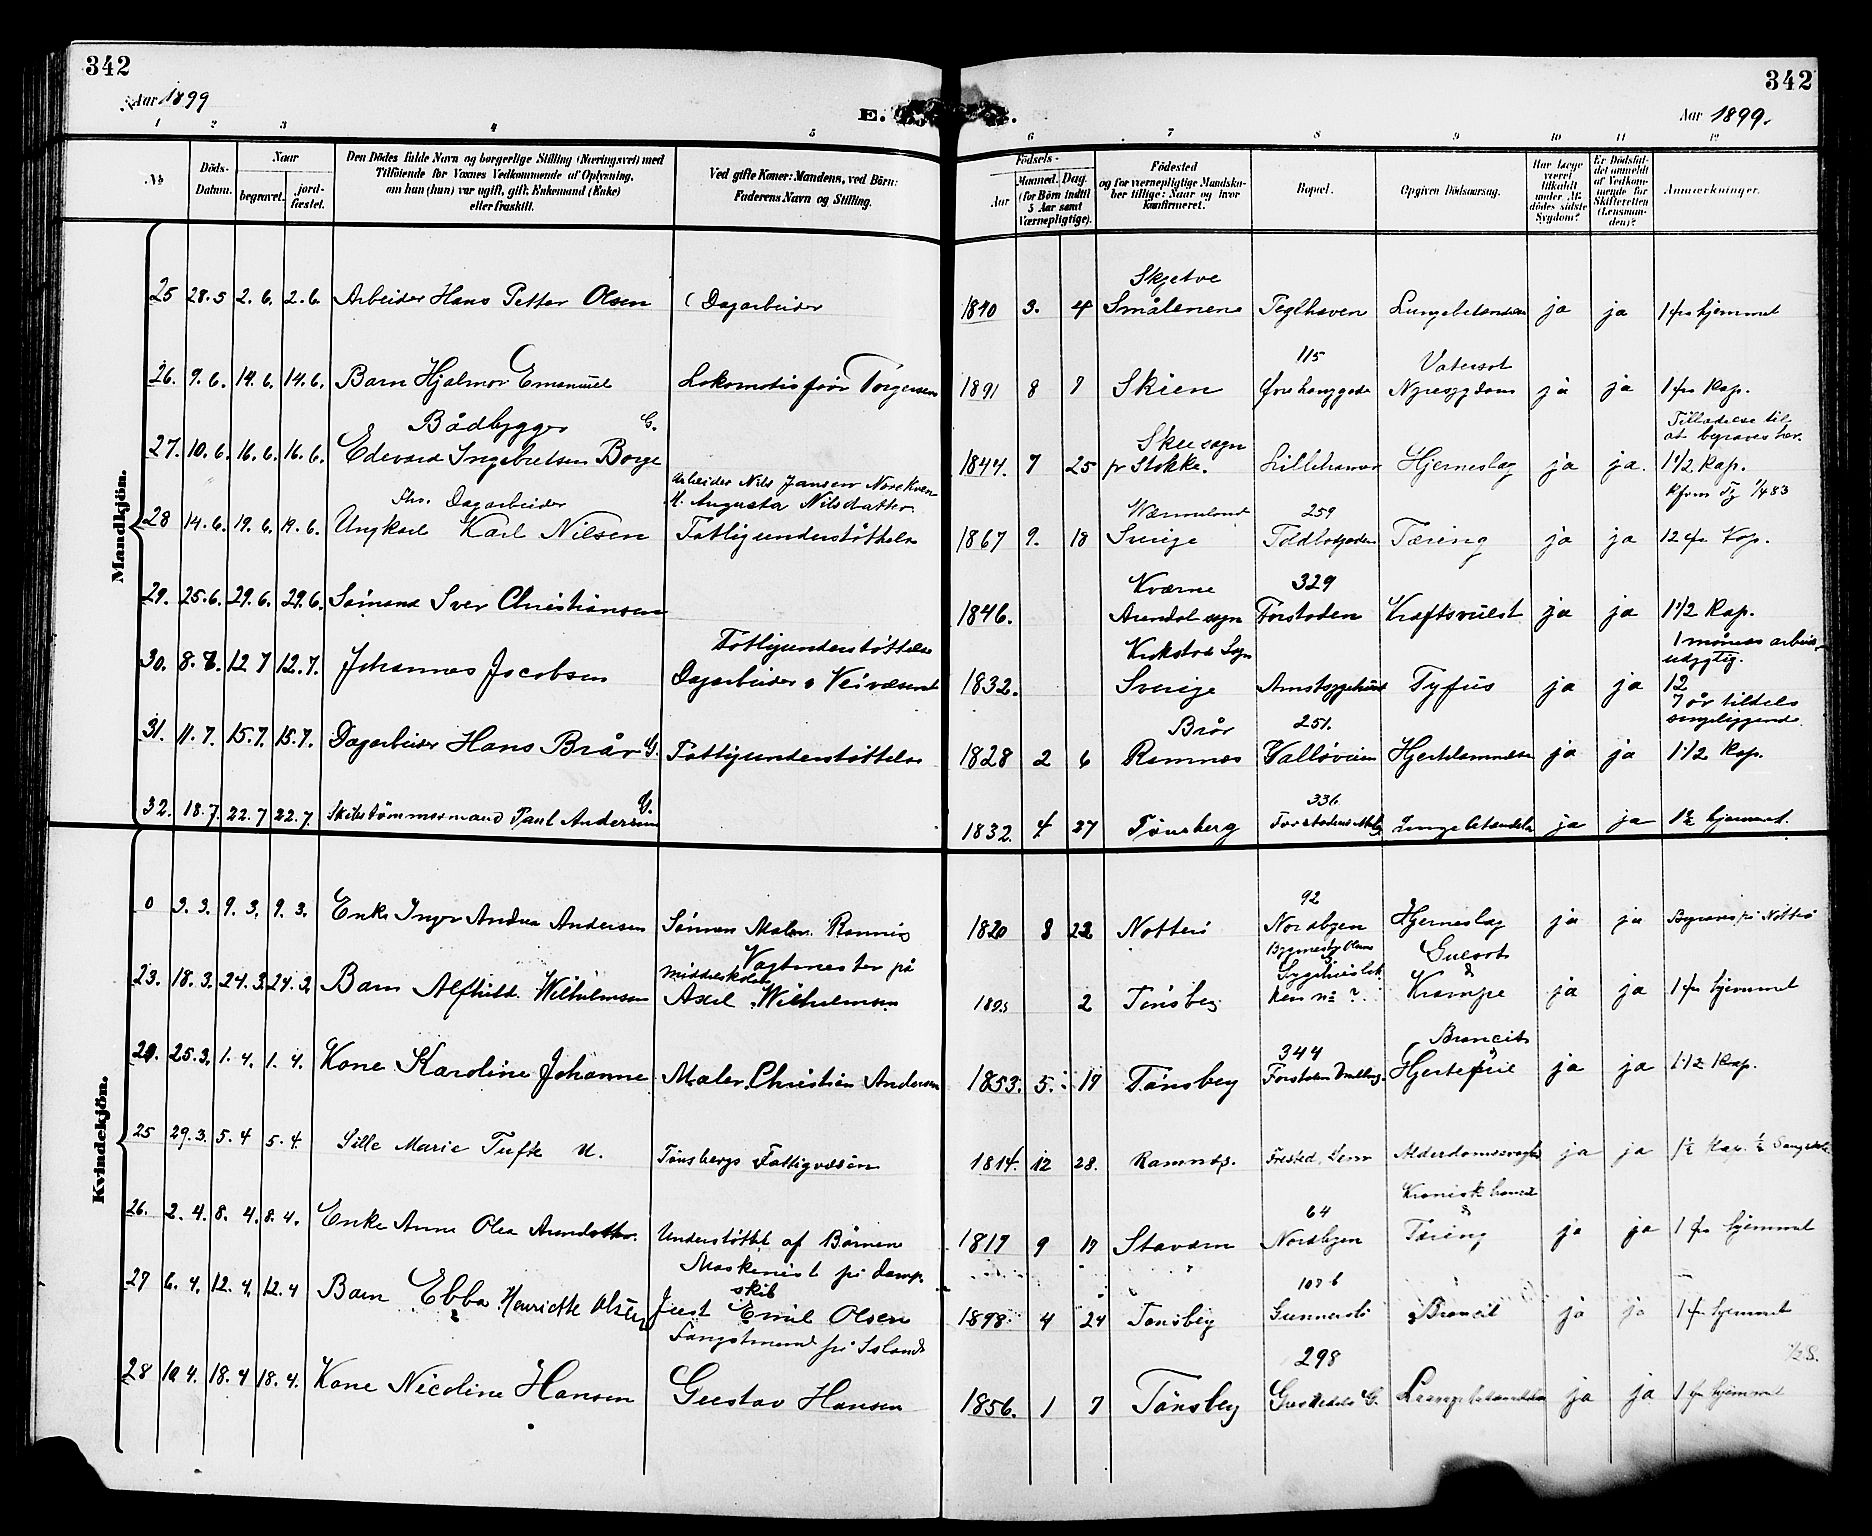 342
342
Aar 1899
E.
Aar 1899.
1 2 3 4 5 6 7 8 9 10 11 12
No
Döds-Datum.
Naar
begravet.
jordfæstet.
Den Dödes fulde Navn og borgerlige Stilling (Næringsvei) med
Tilföiende for Voxnes Vedkommende af Oplysning,
om hun (hun) var ugift, gift, Enkemand (Enke)
eller fraskilt.
Ved gifte Koner: Mandens, ved Börn:
Faderens Navn og Stilling.
Födsels-
Aar
Maaned. Dag.
(for Börn indtil
5 Aar samt
Værnepligtige).
Födested
og for værnepligtige Mandskaber tillige: Naar og hvor
konfirmeret.
Bopæl.
Opgiven Dödsaarsag.
Har Læge
været
tilkaldt
under Afdödes sidste
Sygdom?
Er Dödsfaldet anmeldt
af Vedkommende for
Skifteretten
(Lensmanden)?
Anmærkninger.
Mandkjön.
Skjetve
25 28.5 2.6. 2.6. Arbeider Hans Petter Olsen (Dagarbeider 1840 3. 4 Smålenene Teglhaven Lungebetændelse ja ja 1 fra hjemmet
115 Vatersot
26. 9.6. 14.6. 14.6. Barn Hjalmar Emanuel Lokomotivfører Torgersen 1891 8 7 Skien Øvre Langgade Nyresygdom ja ja 1 fra Kap.
Bådbygger G. Skee sogn Tilladelse til
at begraves her.
27. 10.6. 16.6. 16.6. Edevard Ingebretsen Borge 1844. 7 25 pr Stokke. Lillehammer Hjerneslag ja ja. 1 1/2 Kap.
Arbeider Nils Jansen
M. Augusta Nilsdatter
Dagarbeider Wærmeland 259
28 14.6. 19.6. 19.6. Ungkarl Karl Nilsen Fattigunderstøttelse 1867 9. 18 Sverige Toldbodgaden Tæring ja ja 12 fra Kap.
Kværne 329
29. 25.6. 29.6. 29.6. Sømand Iver Christiansen 1846. Arendal sogn Forstaden Kræftsvulst ja ja 1 1/2 Kap.
Fattigunderstøttelse Krokstad Sogn
30. 8.7. 12.7 12.7. Johannes Jacobsen Dagarbeider v Veivæsenet 1832. Sverige Amtssygehuset Tyfus ja ja 12
Brår 251. 7 år tildels
sengeliggende
31. 11.7. 15.7. 15.7. Dagarbeider Hans Brår G. Fattigunderstøttelse 1828 2 6 Ramnæs Valløveien Hjertelammelse ja ja 1 1/2 Kap.
336
32. 18.7. 22.7 22.7. Skibstømmermand Paul Andersen G. 1832. 4 27 Tønsberg Lungebetændelse ja ja 1 1/2 hjemmet.
Kvindekjön.
92
0 3.3. 9.3. 9.3. Enke Inger Andrea Andersen Sønnen Maler 1820 8 22 Nøtterø Nordbyen Hjerneslag ja ja Begraves på Nøtterø
Vagtmester på
Middelskolen Gulsot
&
23. 18.3. 24.3. 24.3. Barn Alfhild Wilhelmsen Axel Wilhelmsen 2 Tønsberg Krampe ja ja 1 fra hjemmet
344 Broncit
&
24. 25.3. 1.4. 1.4. Kone Karoline Johanne Maler Christian Andersen 1853. 5. 19 Tønsberg Hjertefeil ja ja 1 1/2 Kap.
25 29.3. 5.4 5.4. Sille Marie Tufte U. Tønsbergs Fattigvæsen 1814. 12 28. Ramnæs. Alderdomssvaghed ja ja 1 1/2 Kap.
64 Kronisk broncit
&
26. 2.4. 8.4. 8.4. Enke Anne Olea Arendsdtr. Understøttet af Børnene 1817 9 17 Stavern Nordbyen Tæring ja ja 1 fra hjemmet
Maskinist på Dampskib 108 b
27 6.4. 12.4. 12.4 Barn Ebba Henriette Olsen Just Emil Olsen 1898. 4 24 Tønsberg Gunnersbø Broncit ja ja 1 fra hjemmet
Fangstmand på Island 298 1/2 S.
28 10.4. 18.4 18.4. Kone Nicoline Hansen Gustav Hansen 1856. 1 7 Tønsberg Lungebetændelse ja ja 1 fra hjemmet